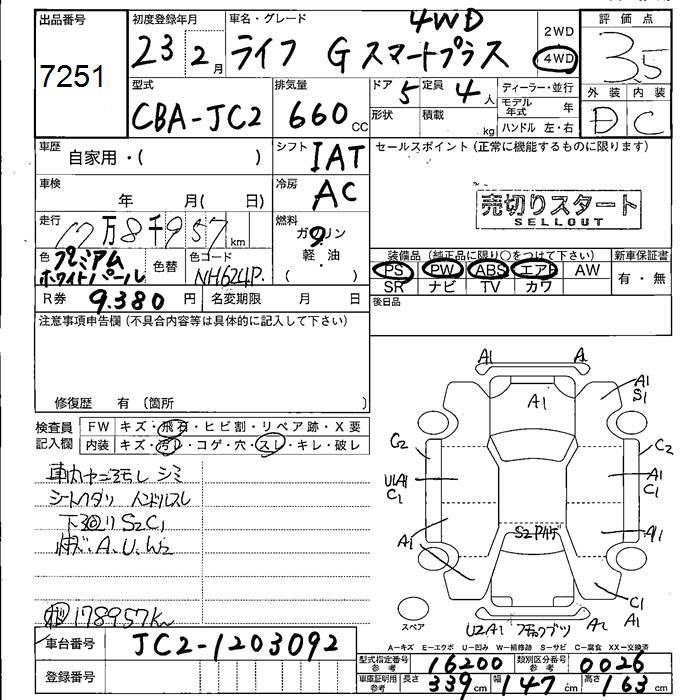 出品番号
7251
初度登録年月
23 2月
車名・グレード
4WD
ライフ G スマートプラス
2WD
4WD
評価点
3.5
外装 内装
D C
型式
CBA-JC2
排気量
660cc
ドア 5
定員 4人
形状
積載 kg
ディーラー・並行
モデル年式 年
ハンドル 左・右
車歴
自家用・( )
シフト IAT
セールスポイント(正常に機能するものに限ります)
車検
年 月( 日)
冷房 AC
売切りスタート
SELLOUT
走行
17万8千957km
燃料
ガソリン
軽・油
( )
色 プレミアムホワイトパール
色替
色コード NH624P.
装備品(純正品に限り○をつけて下さい)
PS PW ABS エアB AW
SR ナビ TV カワ
新車保証書
有・無
R券 9.380円
名変期限 月 日
後日品
注意事項申告欄(不具合内容等は具体的に記入して下さい)
修復歴 有〔箇所 〕
検査員記入欄
FW キズ・飛石・ヒビ割・リペア跡・X要
内装 キズ・汚レ・コゲ・穴・スレ・キレ・破レ
シミ
シートヘタリ ハンドルスレ
下回り S2C1
キズ.A.U.W2
178957km
A1 A2
A1
A1
S1
C2
C2
U1A1
C1
A1
C1
A1
A1
S2
C1
A1
スペア
U2A1
A2
A－キズ E－エクボ U－凹み W－補修跡 S－サビ C－腐食 XX－交換済
車台番号
JC2-1203092
登録番号
型式指定番号 参考 16200
類別区分番号 参考 0026
車庫証明用 参考 長さ 339cm 幅 147cm 高さ 163cm